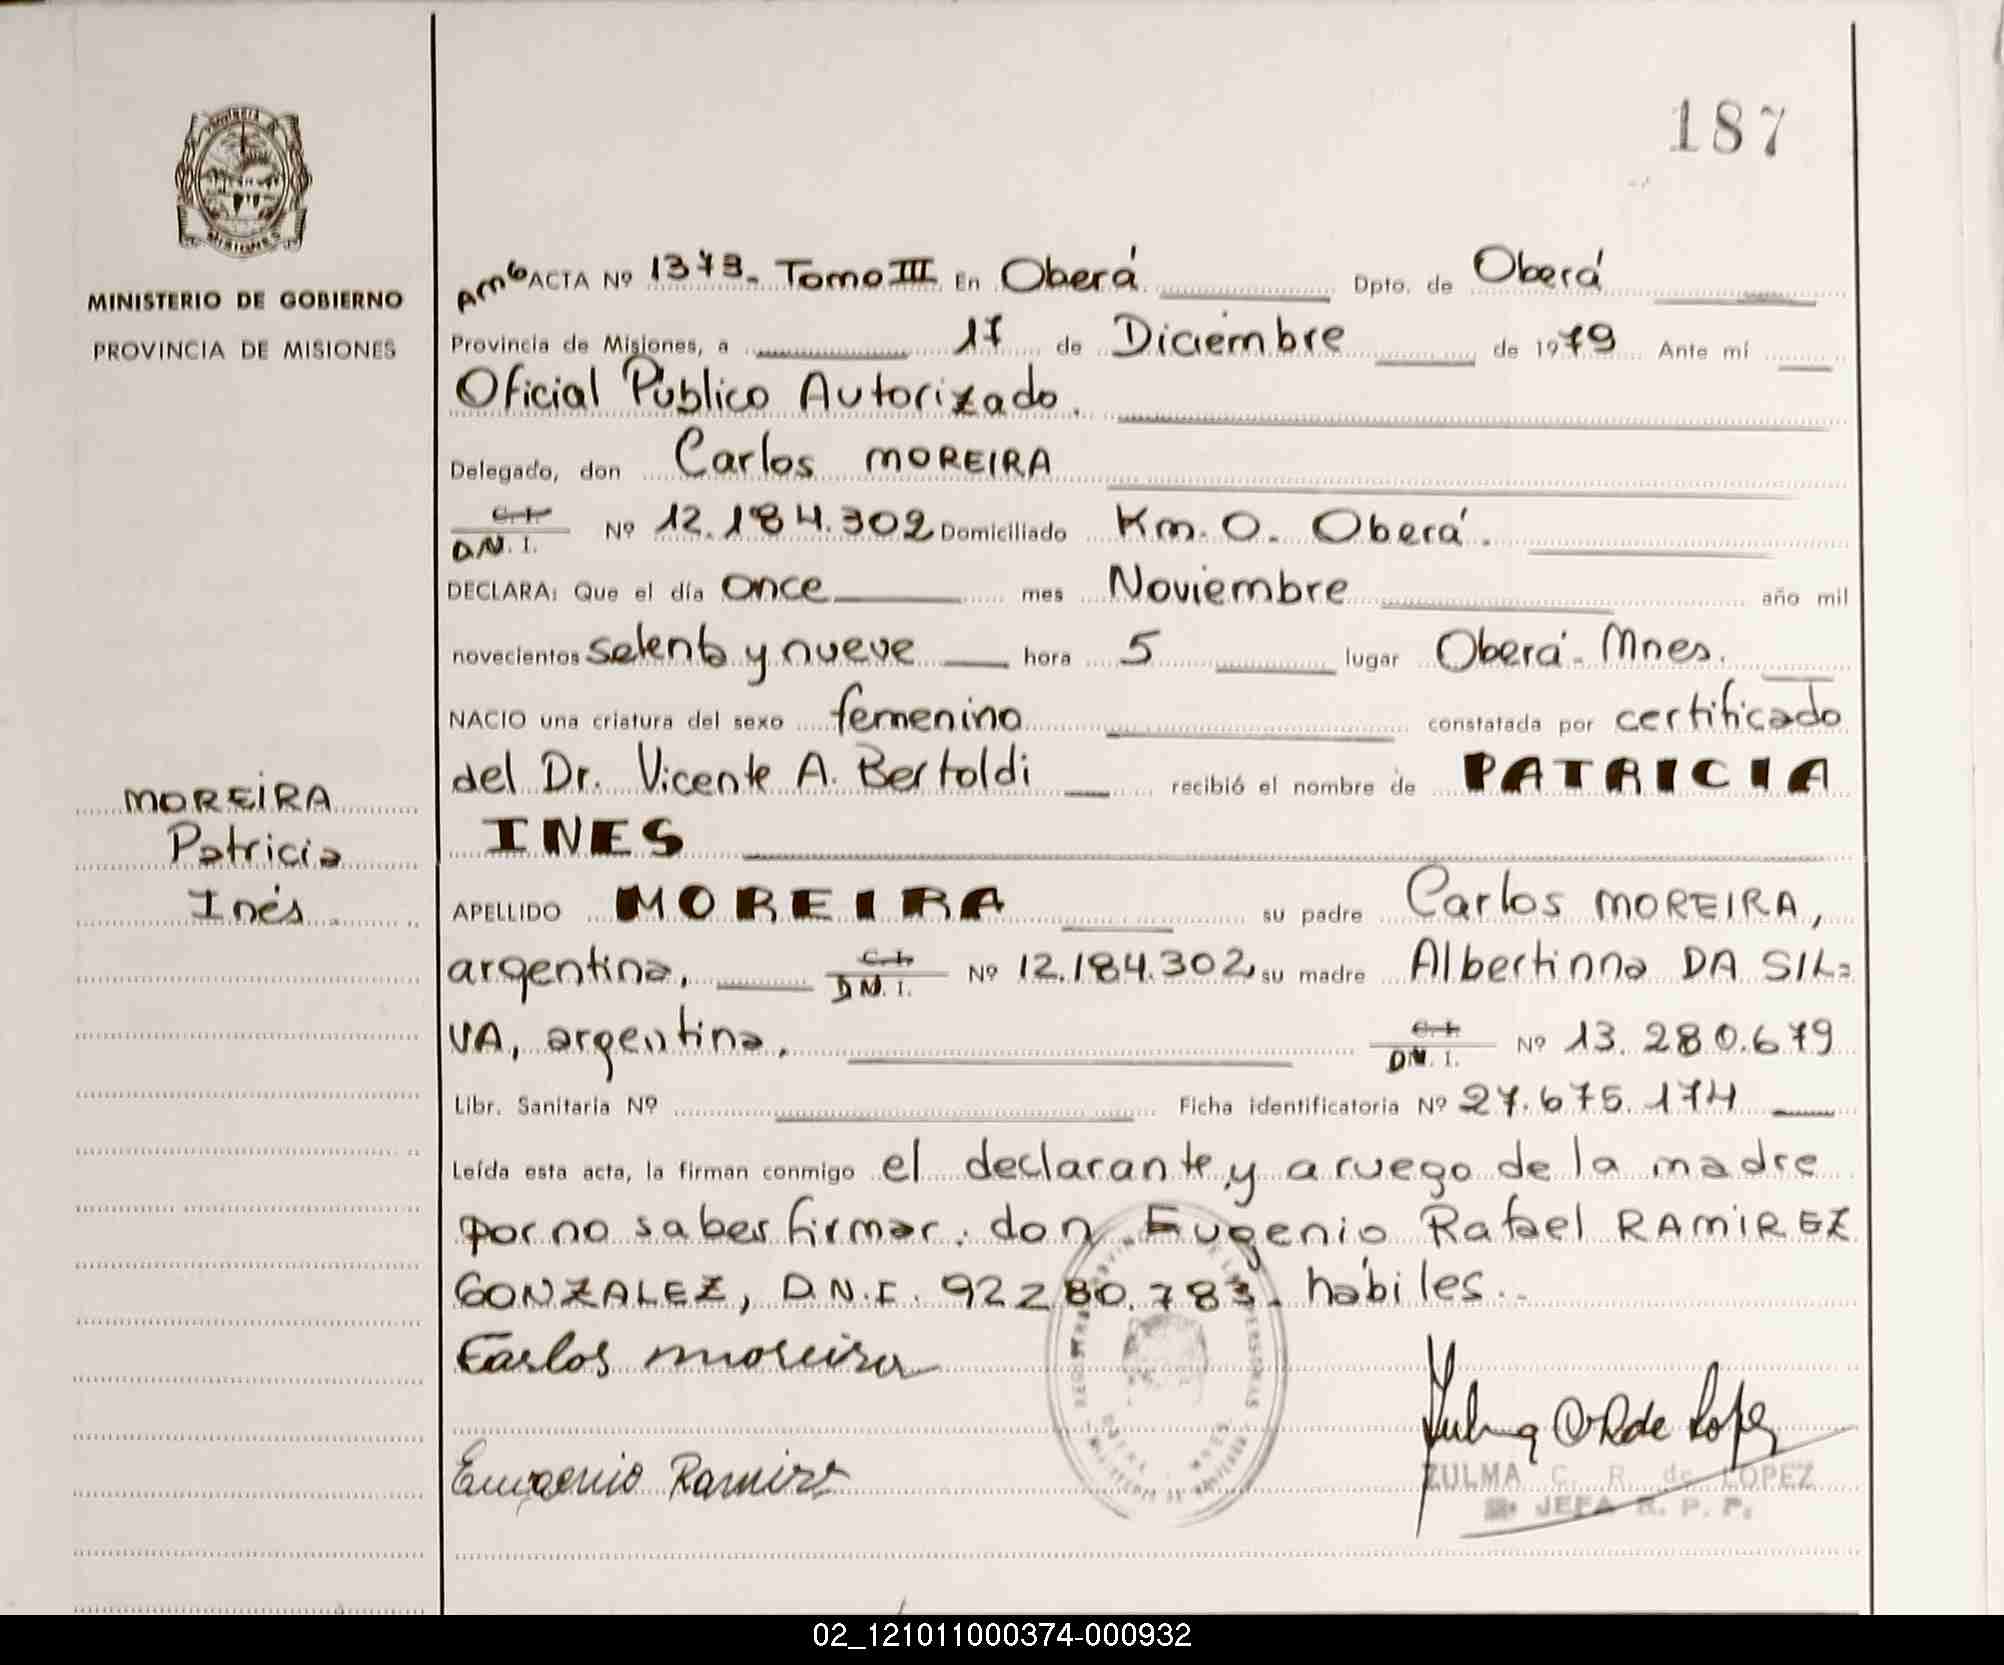 187
MISIONES
MINISTERIO DE GOBIERNO
PROVINCIA DE MISIONES
MOREIRA
Patricia
Inés.
ACTA Nº 1373. Tomo III En Oberá Dpto. de Oberá
Provincia de Misiones, a 17 de Diciembre de 1979 Ante mí
Oficial Público Autorizado.
Delegado, don Carlos MOREIRA
C.I.
D.N.I. Nº 12.184.302 Domiciliado Km. 0. Oberá.
DECLARA: Que el día once mes Noviembre año mil
novecientos setenta y nueve hora 5 lugar Oberá-Mnes.
NACIO una criatura del sexo femenino constatada por certificado
del Dr. Vicente A. Bertoldi recibió el nombre de PATRICIA
INES
APELLIDO MOREIRA su padre Carlos MOREIRA,
argentina, C.I. D.N.I. Nº 12.184.302, su madre Albertinna DA SIL=
VA, argentina. C.I. D.N.I. Nº 13.280.679
Libr. Sanitaria Nº Ficha identificatoria Nº 27.675.174
Leída esta acta, la firman conmigo el declarante y a ruego de la madre
por no saber firmar: don Eugenio Rafael RAMIREZ
GONZALEZ, D.N.I. 92280.783. hábiles..
Carlos moreira
Eugenio Ramirez
ZULMA C. R. de LOPEZ
JEFA R. P. P.
02_121011000374-000932